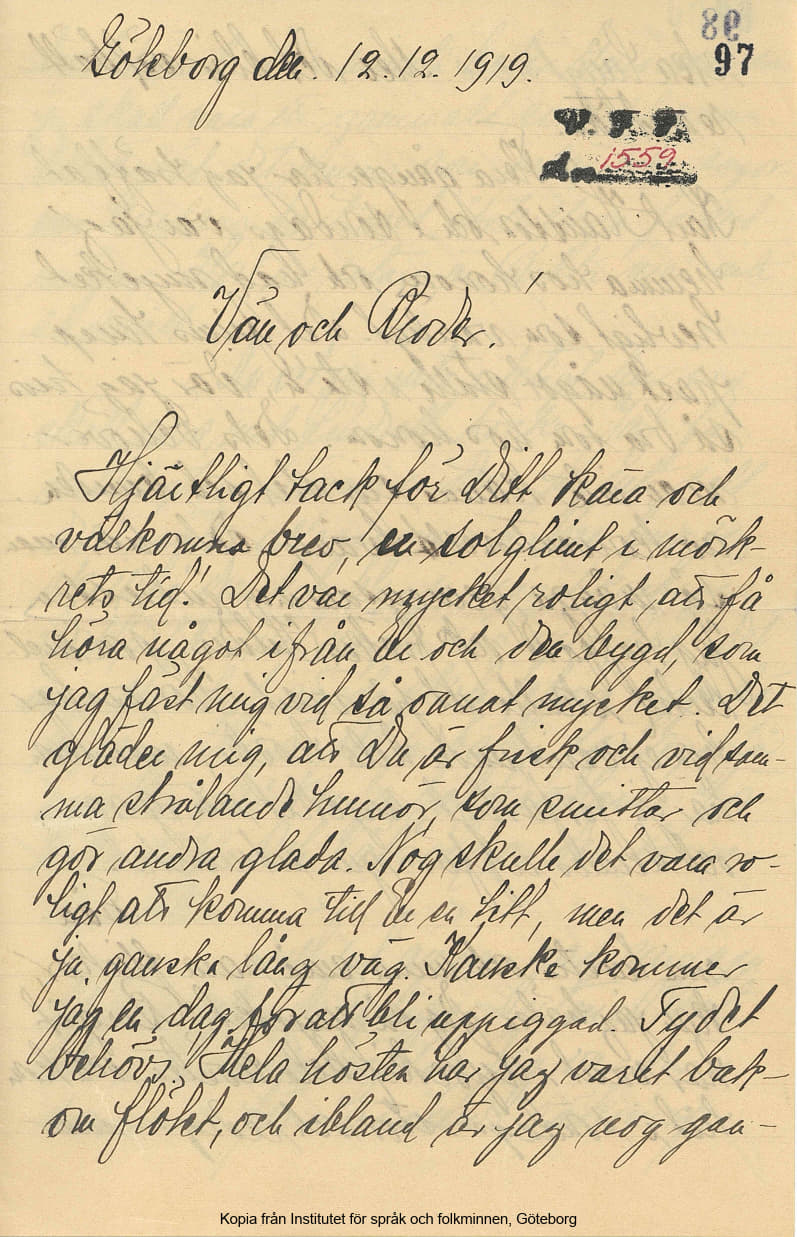 98
97
Göteborg den. 12.12.1919.
V. F. F.
1559
Vän och Broder!
Hjärtligt tack för Ditt kära och
välkomna brev, en solglimt i mörk-
rets tid! Det var mycket roligt att få
höra något ifrån Er och den bygd, som
jag fäst mig vid så oanat mycket. Det
gläder mig, att Du är frisk och vid sam-
ma strålande humör, som smittar och
gör andra glada. Nog skulle det vara ro-
ligt att komma till Er en titt, men det är
ju ganska lång väg. Kanske kommer
jag en dag för att bli uppiggad. Ty det
behövs. Hela hösten har jag varit bak-
om flötet, och ibland är jag nog gan-
Kopia från Institutet för språk och folkminnen, Göteborg